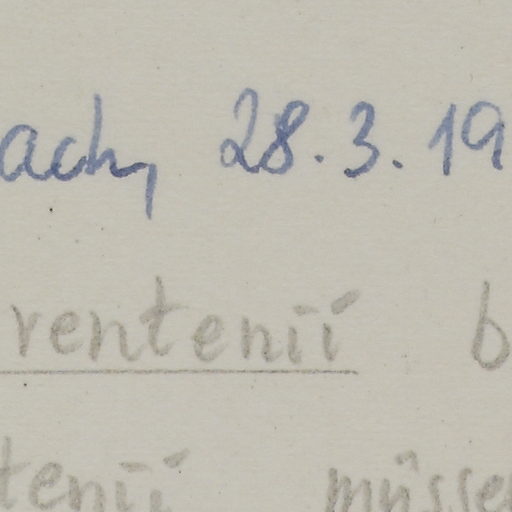 ach, 28.3.19
rentenii b
tenii müsse